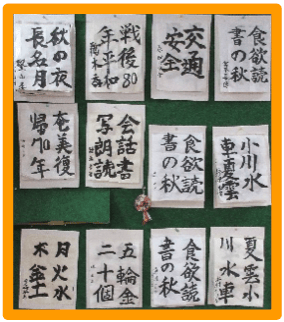 食欲読
書の秋
交通
安全
戦後80
年平和
秋の夜
長名月
小川水
車夏雲
食欲読
書の秋
会話書
写朗読
奄美復
帰70年
夏雲小
川水車
食欲読
書の秋
五輪金
二十個
月火水
木金土